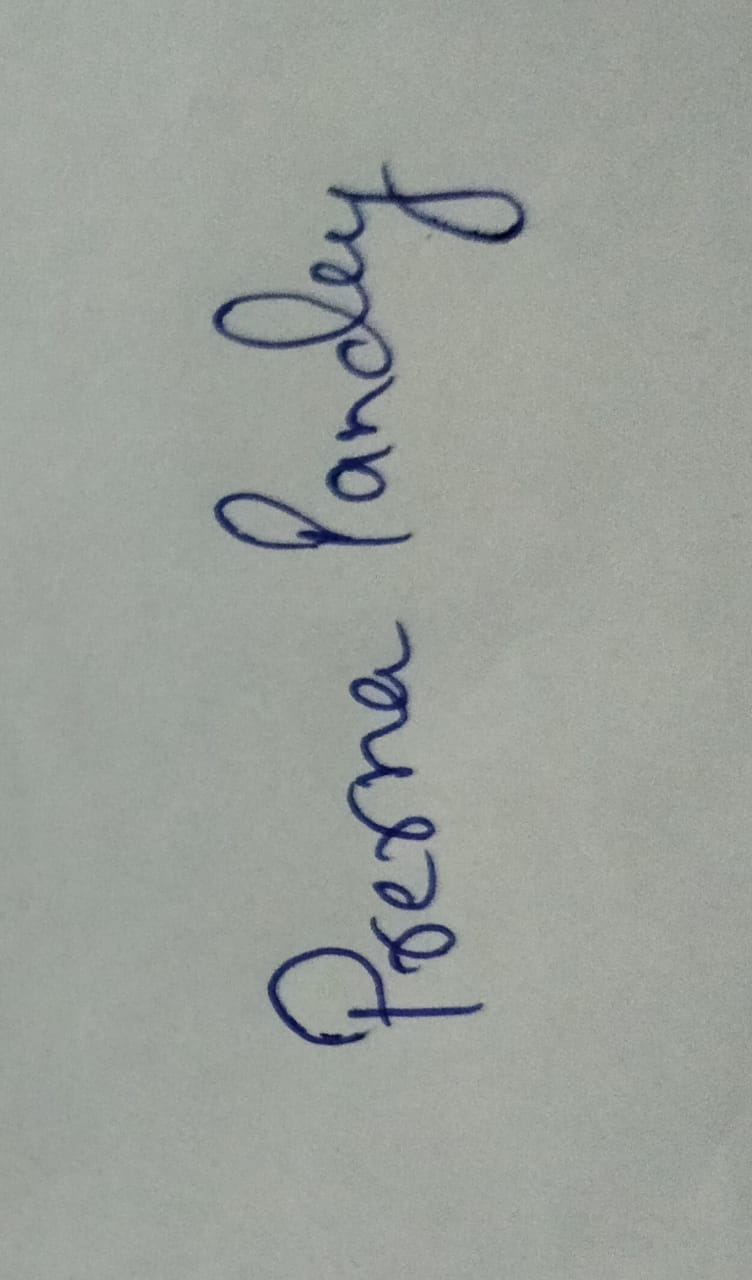 Prerna Pandey